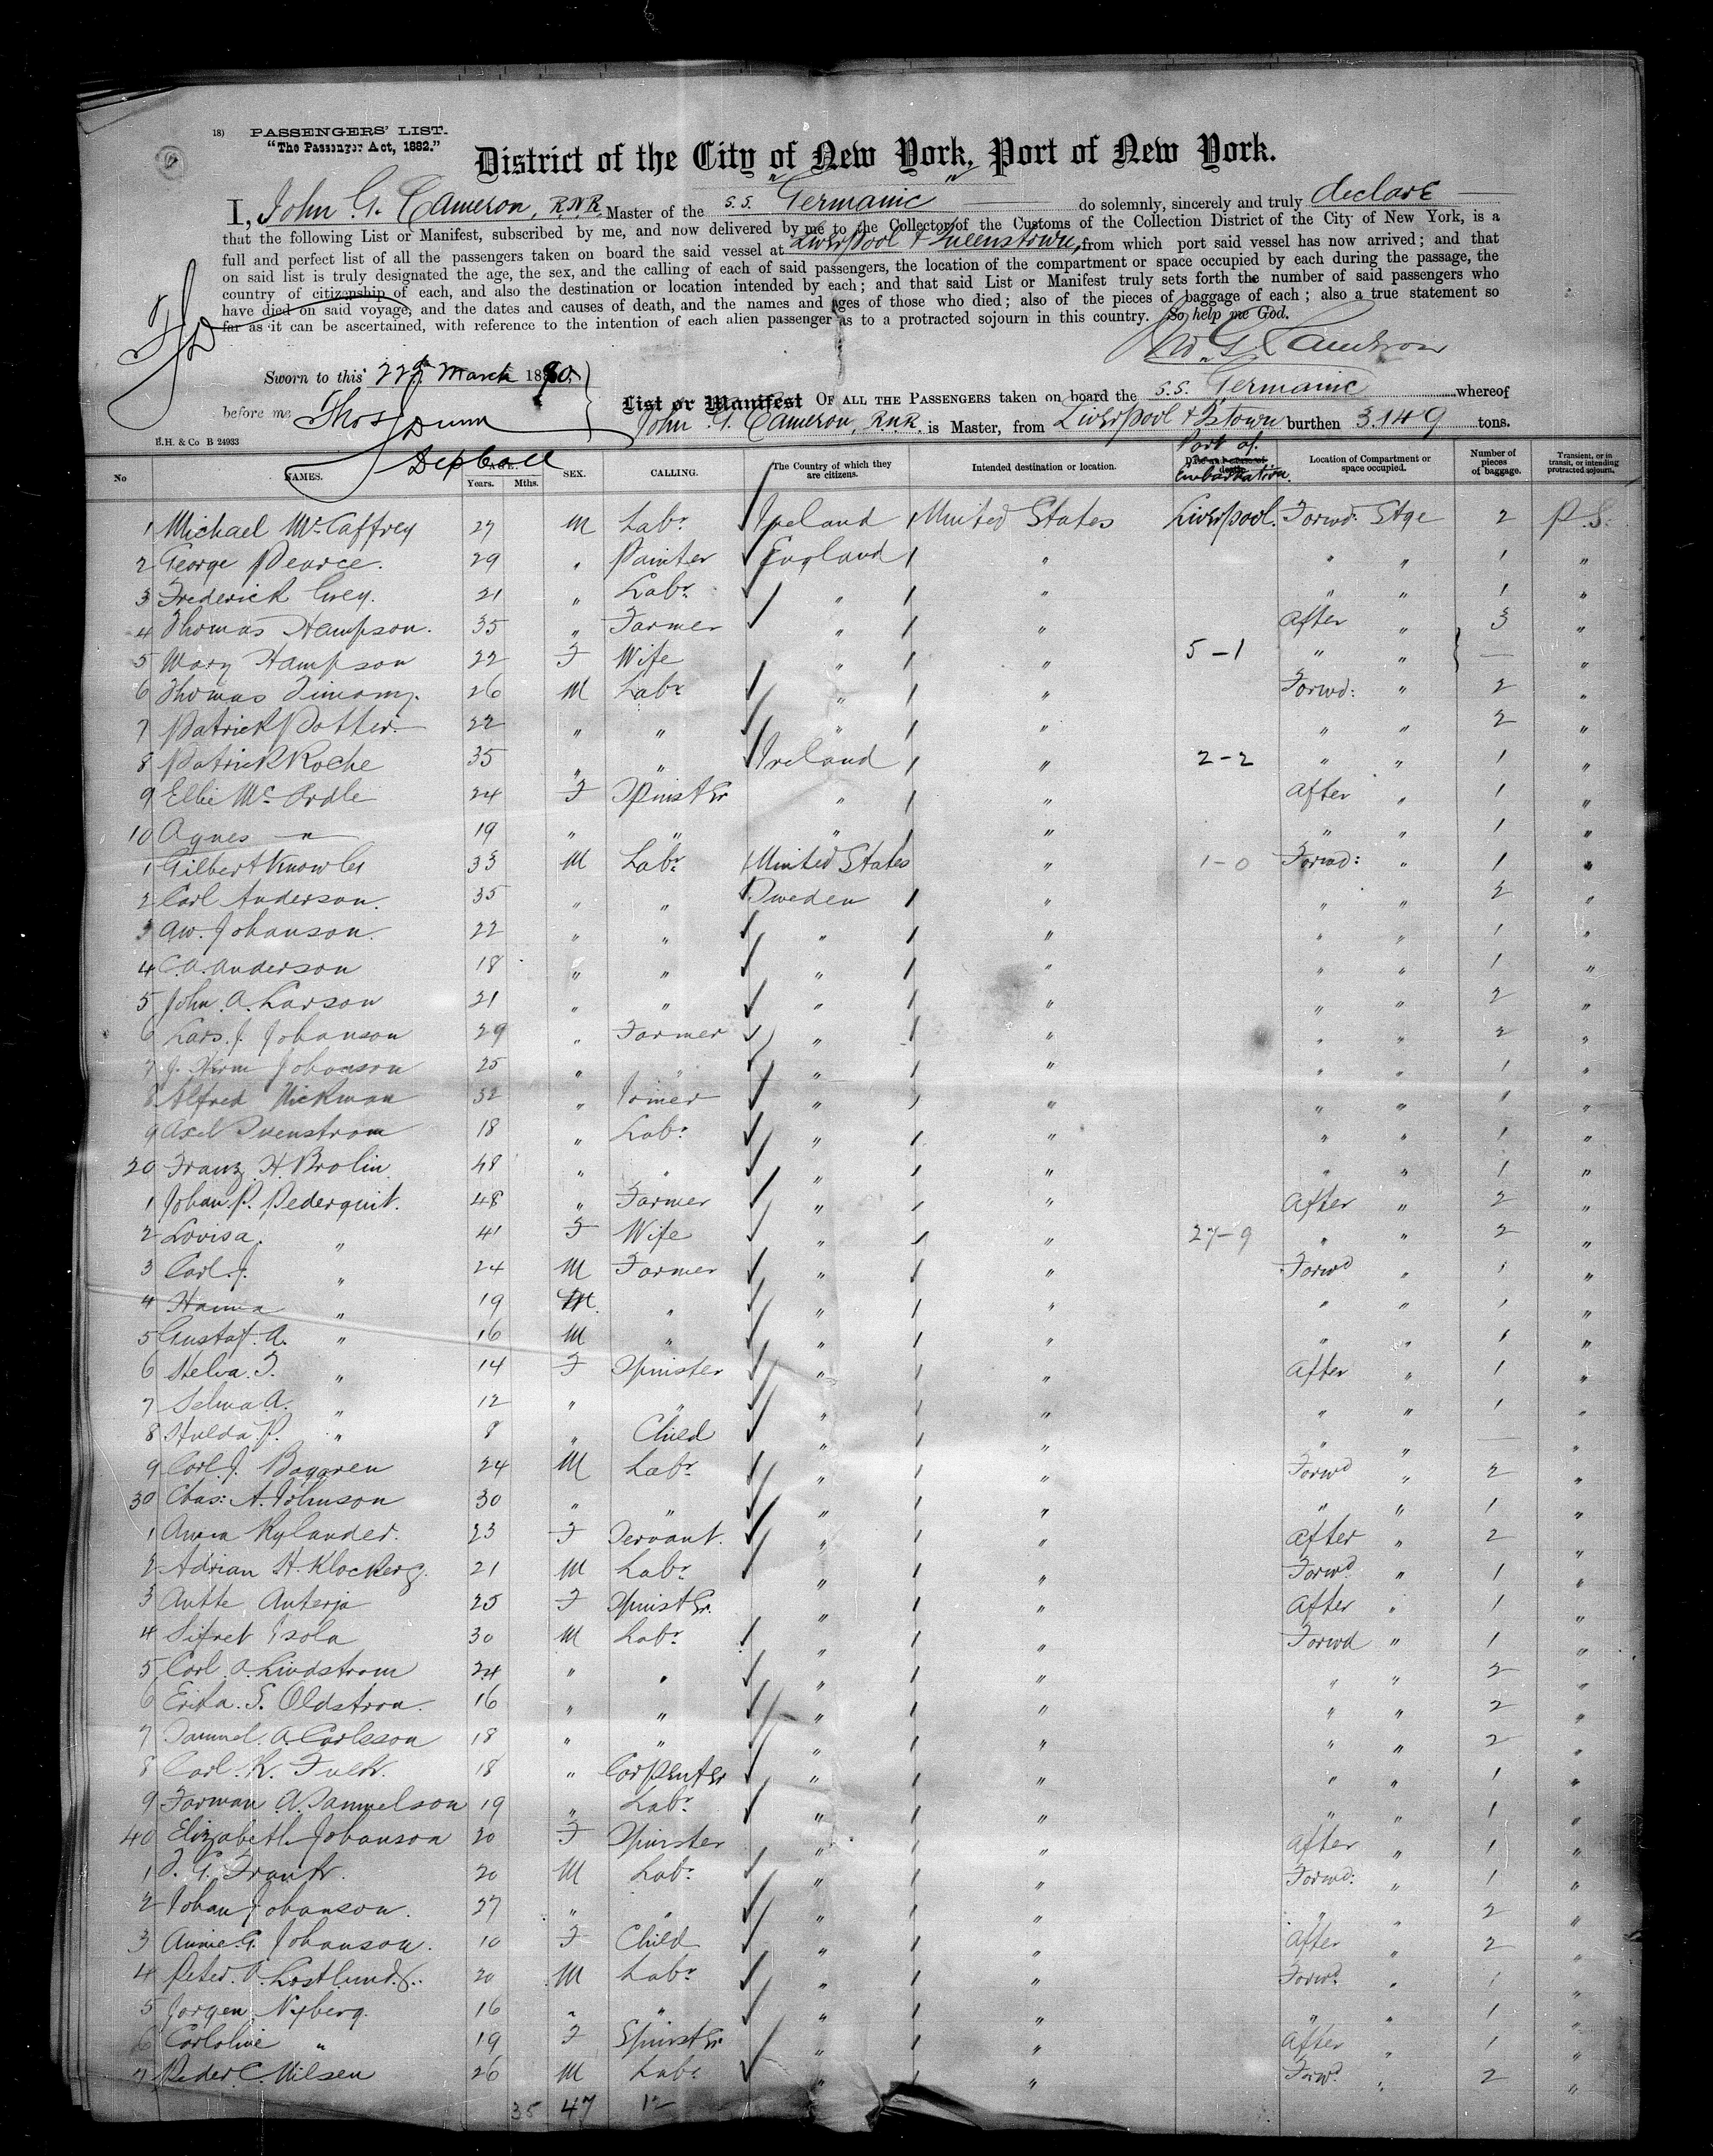 18)
PASSENGERS' LIST.
"The Passenger Act, 1882."
District of the City of New York, Port of New York.
I, John G. Cameron, R.N.R. Master of the s.s. "Germanic" do solemnly, sincerely and truly declare
that the following List or Manifest, subscribed by me, and now delivered by me to the Collector of the Customs of the Collection District of the City of New York, is a
full and perfect list of all the passengers taken on board the said vessel at Liverpool & Queenstown, from which port said vessel has now arrived; and that
on said list is truly designated the age, the sex, and the calling of each of said passengers, the location of the compartment or space occupied by each during the passage, the
country of citizenship of each, and also the destination or location intended by each; and that said List or Manifest truly sets forth the number of said passengers who
have died on said voyage, and the dates and causes of death, and the names and ages of those who died; also of the pieces of baggage of each; also a true statement so
far as it can be ascertained, with reference to the intention of each alien passenger as to a protracted sojourn in this country. So help me God.
Jno. G. Cameron
Sworn to this 22nd March 1890
before me Thos J Dunn
Dep Coll
List or Manifest OF ALL THE PASSENGERS taken on board the s.s. Germanic whereof
John G. Cameron, R.N.R. is Master, from Liverpool & Q'stown burthen 3149 tons.
E.H. & Co B 24933
No NAMES. AGE. Years. Mths. SEX. CALLING. The Country of which they are citizens. Intended destination or location. Port of Embarkation. Location of Compartment or space occupied. Number of pieces of baggage. Transient, or in transit, or intending protracted sojourn.
1 Michael McCaffrey 27 M Labr Ireland United States Liverpool. Forwd: Stge 2 P.S.
2 George Pearce. 29 " Painter England " " " 1 "
3 Frederick Grey. 21 " Labr " " " " 1 "
4 Thomas Hampson. 35 " Farmer " " After " 3 "
5 Mary Hampson 22 F Wife " " 5-1 " " — "
6 Thomas 26 M Labr " " Forwd: " 2 "
7 Patrick Potter 22 " " " " " " 2 "
8 Patrick Roche 35 " " Ireland " 2-2 " " 1 "
9 Ellie McArdle 24 F Spinster " " After " 1 "
10 Agnes " 19 " " " " " " 1 "
1 Gilbert Knowles 33 M Labr United States " 1-0 Forwd: " 1 "
2 Carl Anderson. 35 " " Sweden " " " 2 "
3 Aw. Johanson. 22 " " " " " " 1 "
4 C.A. Anderson 18 " " " " " " 1 "
5 John A. Larson 21 " " " " " " 2 "
6 Lars. J. Johanson 29 " Farmer " " " " 2 "
7 J. Herm Johanson 25 " " " " " " 1 "
8 Alfred Hickman 32 " Joiner " " " " 1 "
9 Axel Svenstrom 18 " Labr " " " " 1 "
20 Franz. H. Brolin 48 " " " " " " 1 "
1 Johan. P. Pederquit. 48 " Farmer " " After " 2 "
2 Lovisa. " 41 F Wife " " 27-9 " " 2 "
3 Carl. J. " 24 M Farmer " " Forwd " 1 "
4 Hanna " 19 M. " " " " " 1 "
5 Gustaf. A. " 16 M " " " " " 1 "
6 " 14 F Spinster " " After " 1 "
7 Selma A. " 12 " " " " " " 1 "
8 Hulda. P. " 8 " Child " " " " — "
9 Carl. J. 24 M Labr " " Forwd " 2 "
30 Chas: A. Johnson 30 " " " " " " 1 "
1 Anna Rylander. 23 F Servant. " " After " 2 "
2 Adrian H. Klockerg. 21 M Labr " " Forwd " 1 "
3 Antte Anterja 25 F Spinster. " " After " 1 "
4 Sifret Isola 30 M Labr " " Forwd " 1 "
5 Carl. A. Lindstrom 24 " " " " " " 2 "
6 Erika. S. Oldstron. 16 " " " " " " 2 "
7 Samuel. A. Carlsson 18 " " " " " " 2 "
8 Carl. R. 18 " Carpenter " " " " 1 "
9 Farman A. Samuelson 19 " Labr " " " " 1 "
40 Elizabeth Johanson 20 F Spinster " " After " 1 "
1 F. G. Frank. 20 M Labr " " Forwd: " 1 "
2 Johan Johanson. 27 " " " " " " 2 "
3 Annie. G. Johanson. 10 F Child " " After " 2 "
4 Peter. A. 20 M Labr " " Forwd. " 1 "
5 Jorgen Nyberg. 16 " " " " " " 1 "
6 Carloline " 19 F Spinster " " After " 1 "
7 Peder. C. Nilsen 26 M Labr " " Forwd. " 2 "
35 47 12